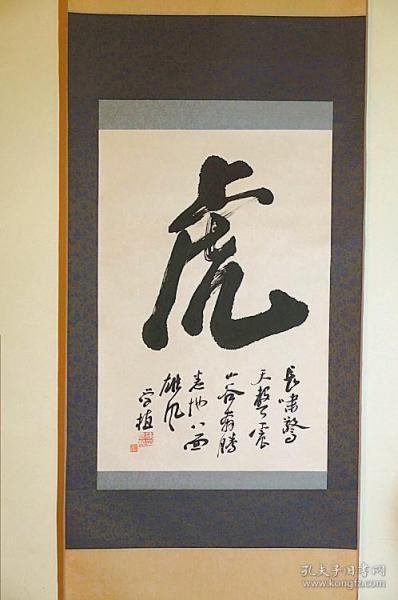 虎
長嘯驚
天聲震
山谷騰
地八面
雄風
植
孔夫子旧书网
www.kongfz.com